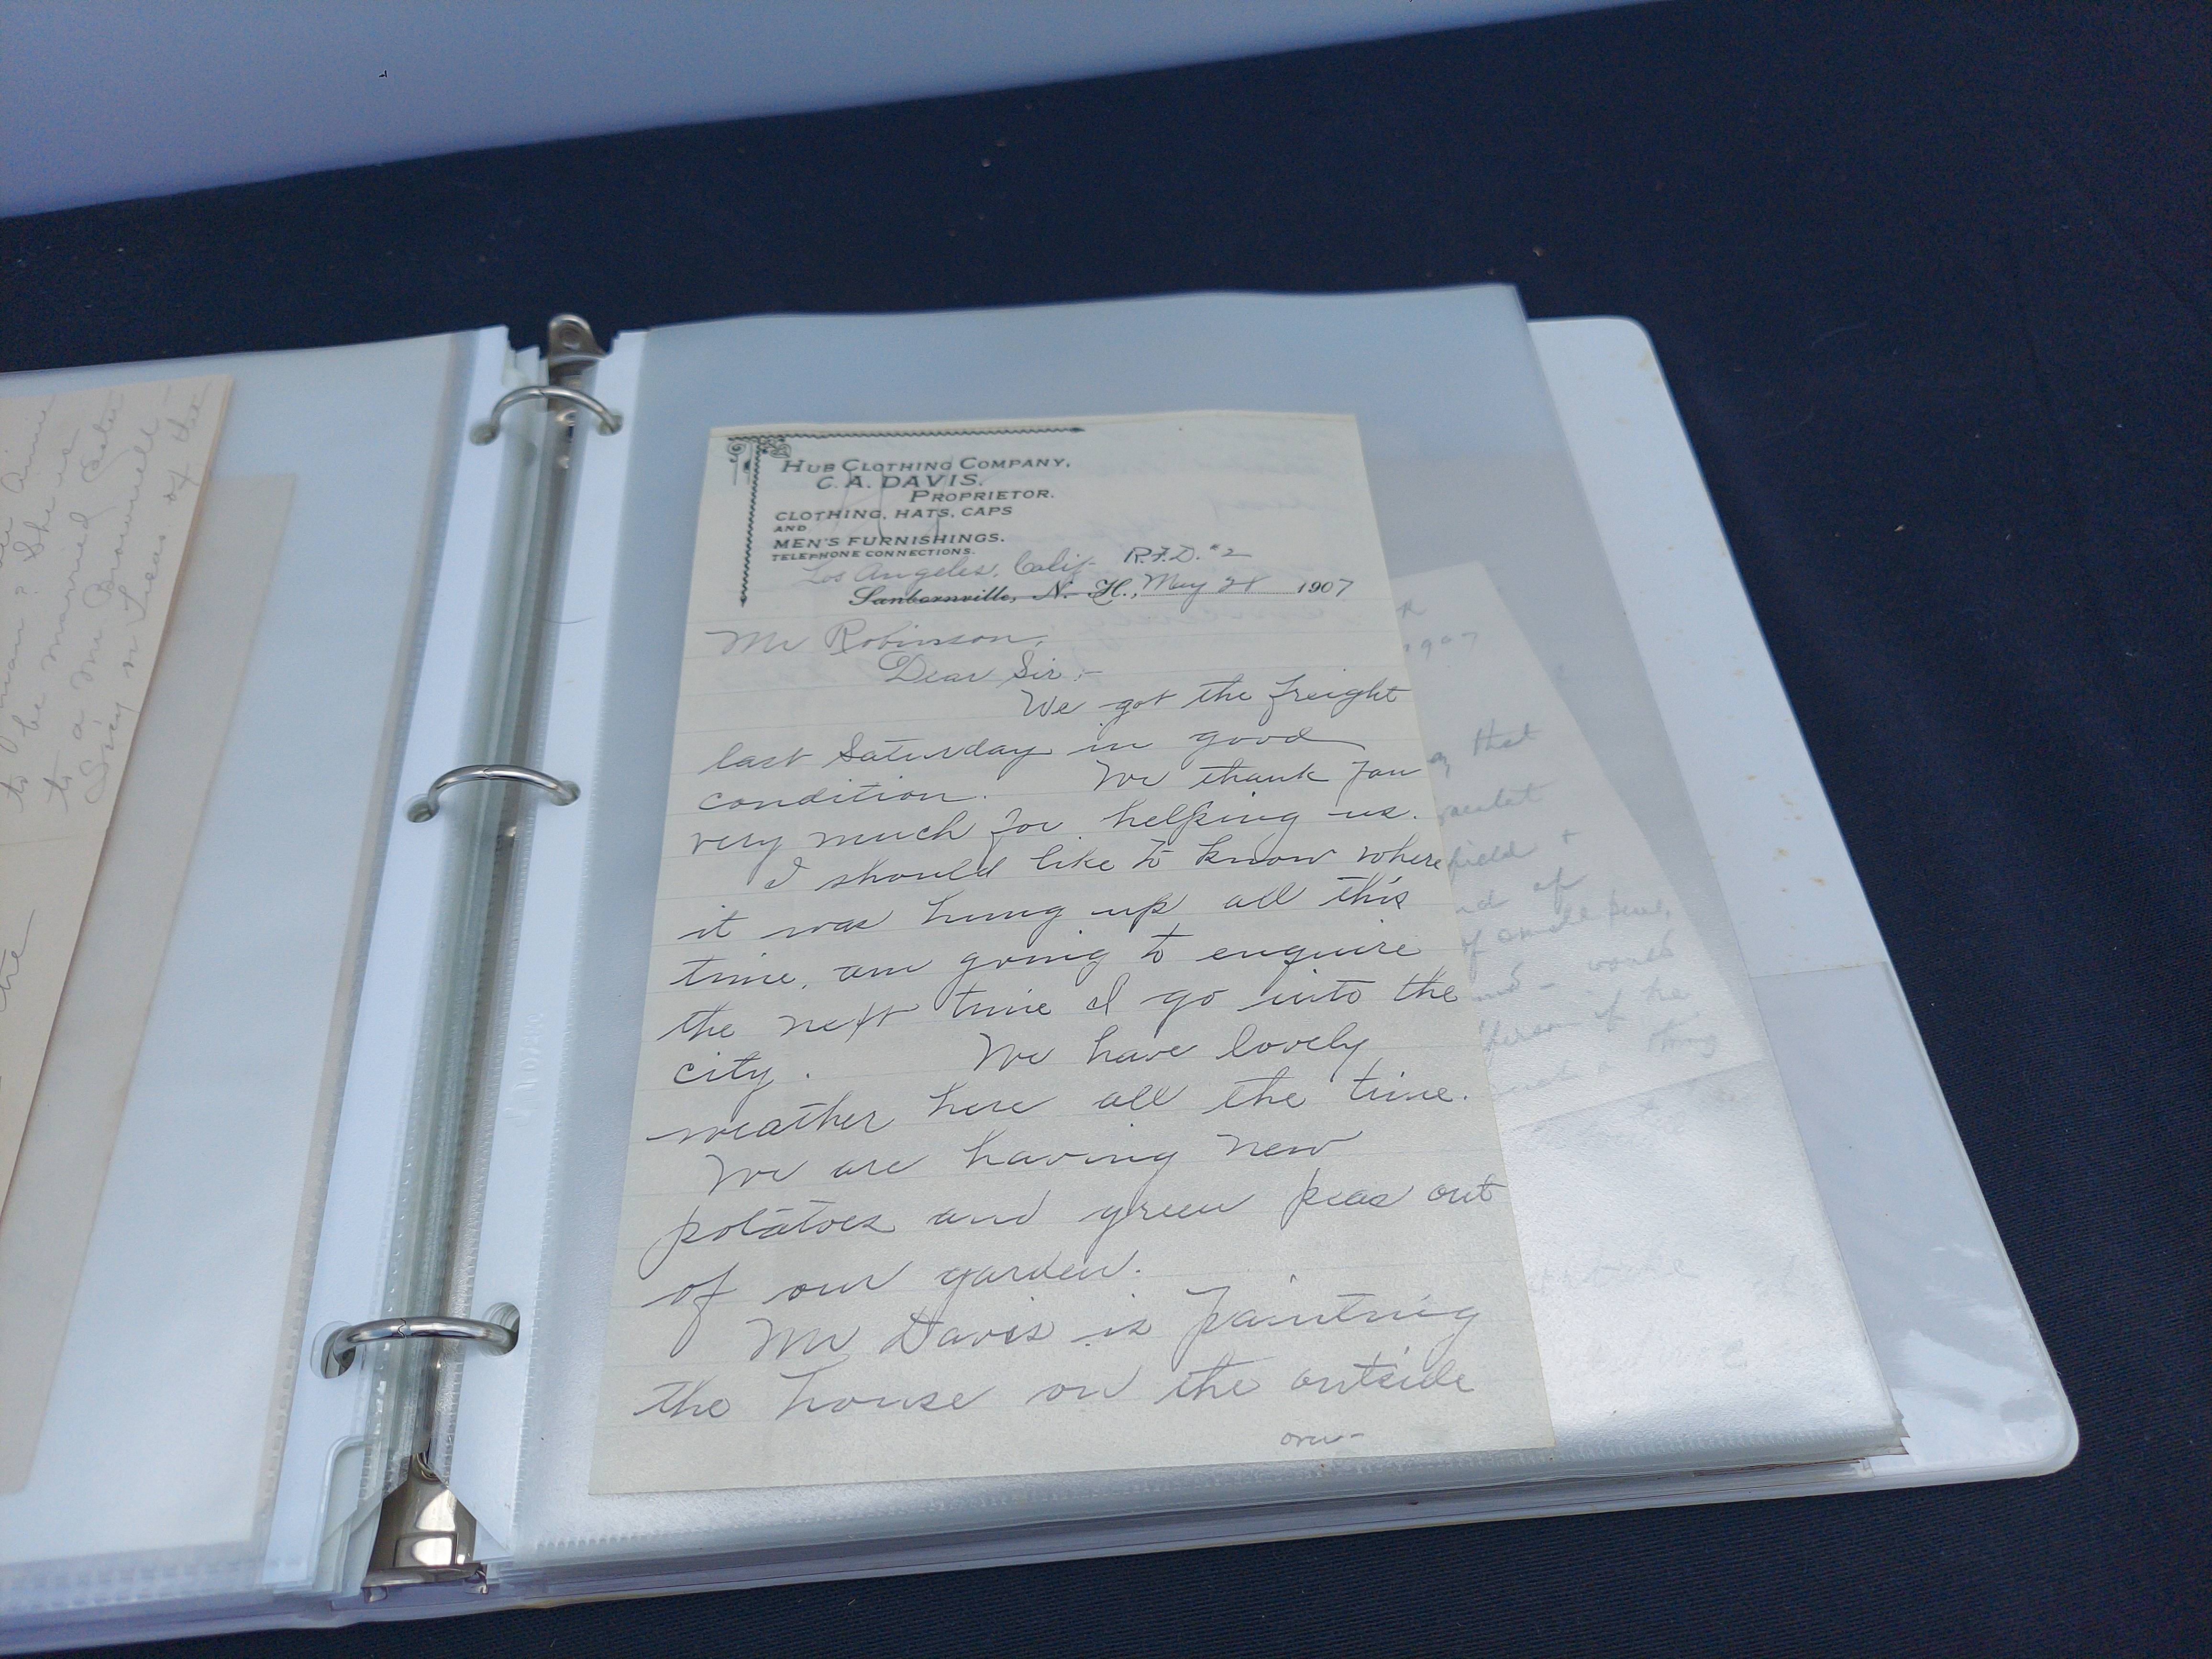 HUB CLOTHING COMPANY,
C. A. DAVIS,
PROPRIETOR.
CLOTHING, HATS, CAPS
AND
MEN'S FURNISHINGS.
TELEPHONE CONNECTIONS.
Los Angeles, Calif- R.F.D. #2
Sanbornville, N. H., May 28 1907
Mr Robinson,
Dear Sir:-
We got the freight
last Saturday in good
condition. We thank you
very much for helping us.
I should like to know where
it was hung up all this
time, am going to enquire
the next time I go into the
city. We have lovely
weather here all the time.
We are having new
potatoes and green peas out
of our garden.
Mr Davis is painting
the house on the outside
over-
? She is
to be married
to a Mr Brownell
of the
the
1907
that
field +
of
would
of the
thing